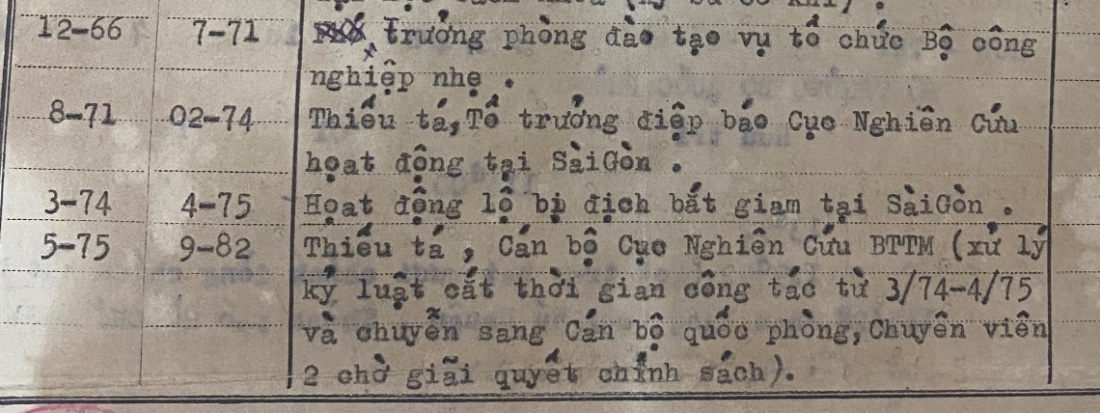 12-66 7-71 Trưởng phòng đào tạo vụ tổ chức Bộ công
nghiệp nhẹ .
8-71 02-74 Thiếu tá,Tổ trưởng điệp báo Cục Nghiên Cứu
hoạt động tại SàiGòn .
3-74 4-75 Hoạt động lộ bị địch bắt giam tại SàiGòn .
5-75 9-82 Thiếu tá , Cán bộ Cục Nghiên Cứu BTTM (xử lý
kỷ luật cắt thời gian công tác từ 3/74-4/75
và chuyễn sang Cán bộ quốc phòng,Chuyên viên
2 chờ giãi quyết chính sách).